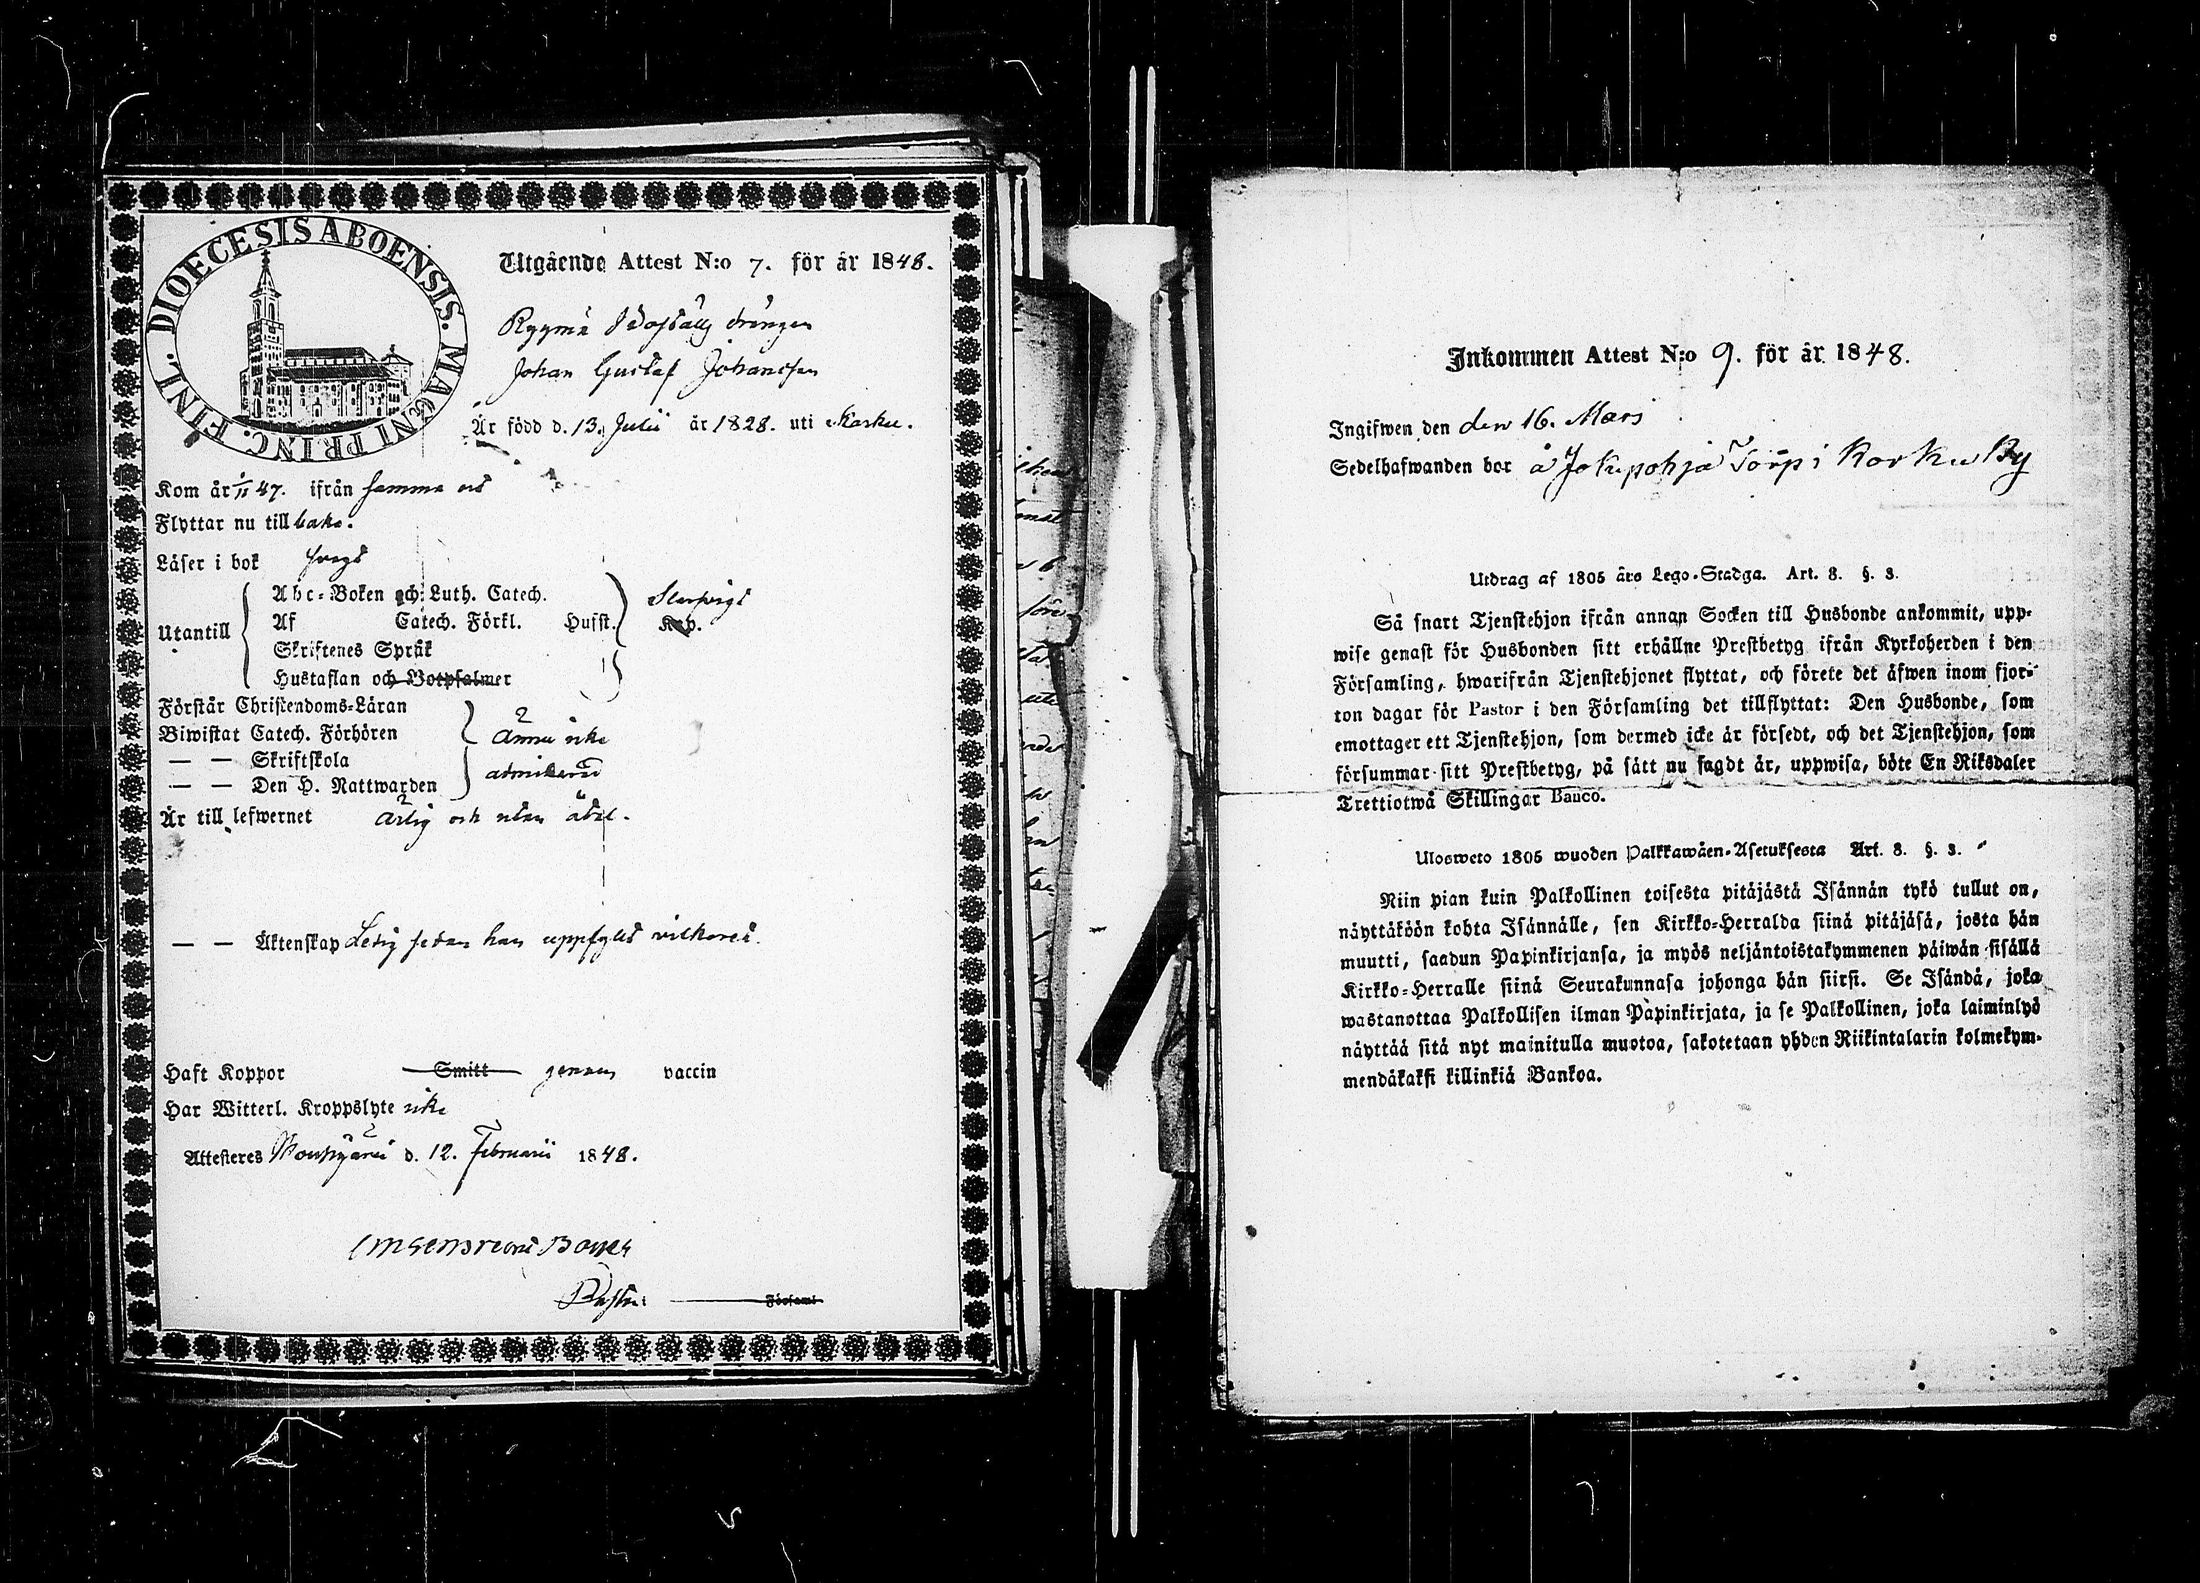 DIOECESIS ABOENSIS. MAGNI PRINC. FINL.
Utgående Attest N:o 7. för år 1848.
drängen
Johan Gustaf Johansson
Är född d. 13. Julii år 1828. uti Masku.
Kom år 1/11 47. ifrån samma ort
Flyttar nu till baka.
Läser i bok svagt
Utantill
Abc-Boken och Luth. Catech.
Af Catech. Förkl. Husf.
Skriftenes Språk
Hustaflan och Botpsalmer
Kap.
Förstår Christendoms-Läran
Biwistat Catech. Förhören
— — Skriftskola
— — Den H. Nattwarden
Ännu icke
admitterad
Är till lefwernet ärlig och utan åtal.
— — Äktenskap Ledig sedan han uppfyllt vilkoret.
Haft Koppor Smitt genom vaccin
Har Witterl. Kroppslyte icke
Attesteras d. 12. Februarii 1848.
Pastor Församl
Inkommen Attest N:o 9. för år 1848.
Ingifwen den den 16. Mars
Sedelhafwanden bor å Jokipohja Torp i Korku By
Utdrag af 1805 års Lego-Stadga. Art. 8. §. 3.
Så snart Tjenstehjon ifrån annan Socken till Husbonde ankommit, upp-
wise genast för Husbonden sitt erhållne Prestbetyg ifrån Kyrkoherden i den
Församling, hwarifrån Tjenstehjonet flyttat, och förete det äfwen inom fjor-
ton dagar för Pastor i den Församling det tillflyttat: Den Husbonde, som
emottager ett Tjenstehjon, som dermed icke är försedt, och det Tjenstehjon, som
försummar sitt Prestbetyg, på sätt nu sagdt är, uppwisa, böte En Riksdaler
Trettiotwå Skillingar Banco.
Ulosweto 1805 wuoden Palkkawäen-Asetuksesta Art. 8. §. 3.
Niin pian kuin Palkollinen toisesta pitäjästä Isännän tykö tullut on,
näyttäköön kohta Isännälle, sen Kirkko-Herralda siinä pitäjäsä, josta hän
muutti, saadun Papinkirjansa, ja myös neljäntoistakymmenen päiwän sisällä
Kirkko-Herralle siinä Seurakunnasa johonga hän siirsi. Se Isändä, joka
wastanottaa Palkollisen ilman Papinkirjata, ja se Palkollinen, joka laiminlyö
näyttää sitä nyt mainitulla muotoa, sakotetaan yhden Riikintalarin kolmekym-
mendäkaksi killinkiä Bankoa.